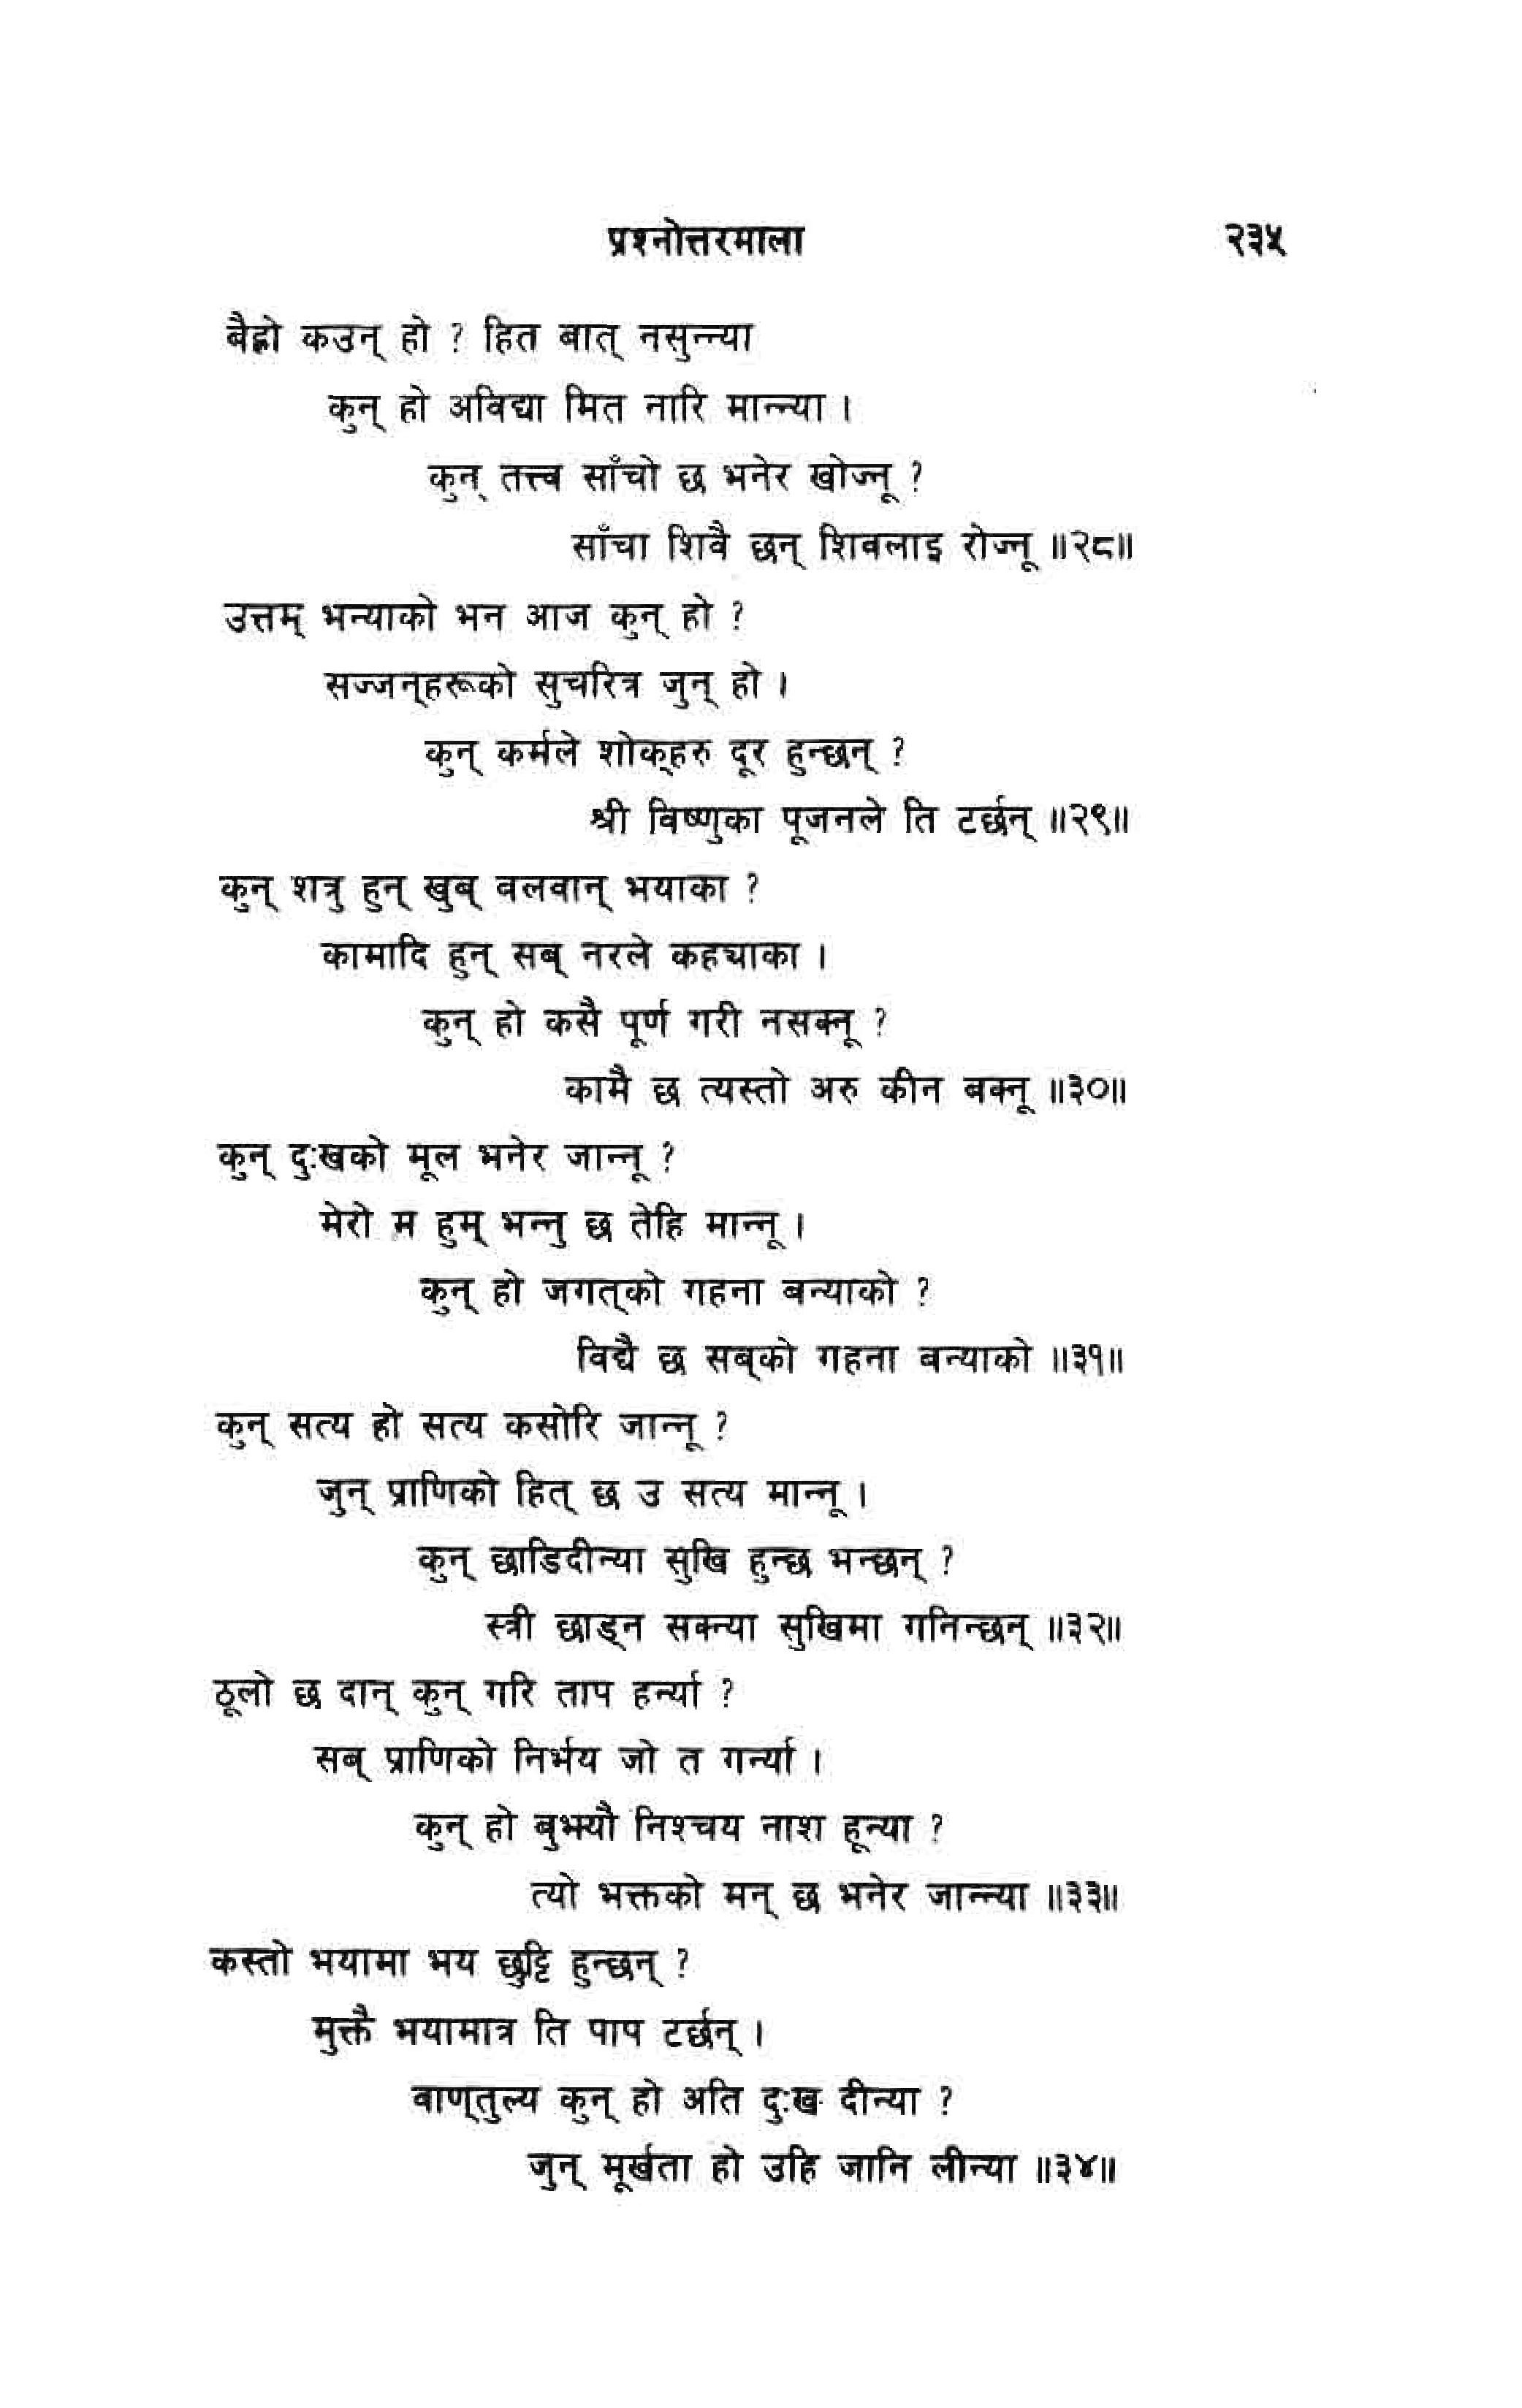 प्रश्नोत्तरमाला २३५
बैह्रो कउन् हो ? हित बात् नसुन्न्या
कुन् हो अविद्या मित नारि मान्न्या ।
कुन् तत्त्व साँचो छ भनेर खोज्नू ?
साँचा शिवै छन् शिवलाइ रोज्नू ॥२८॥
उत्तम् भन्याको भन आज कुन् हो ?
सज्जन्हरूको सुचरित्र जुन् हो ।
कुन् कर्मले शोक्हरु दूर हुन्छन् ?
श्री विष्णुका पूजनले ति टर्छन् ॥२९॥
कुन् शत्रु हुन् खुब् बलवान् भयाका ?
कामादि हुन् सब् नरले कह्याका ।
कुन् हो कसै पूर्ण गरी नसक्नू ?
कामै छ त्यस्तो अरु कीन बक्नू ॥३०॥
कुन् दुःखको मूल भनेर जान्नू ?
मेरो म हुम् भन्नु छ तेहि मान्नू ।
कुन् हो जगत्को गहना बन्याको ?
विद्यै छ सब्को गहना बन्याको ॥३१॥
कुन् सत्य हो सत्य कसोरि जान्नू ?
जुन् प्राणिको हित् छ उ सत्य मान्नू ।
कुन् छाडिदीन्या सुखि हुन्छ भन्छन् ?
स्त्री छाड्न सक्न्या सुखिमा गनिन्छन् ॥३२॥
ठूलो छ दान् कुन् गरि ताप हर्न्या ?
सब् प्राणिको निर्भय जो त गर्न्या ।
कुन् हो बुझ्यौ निश्चय नाश हून्या ?
त्यो भक्तको मन् छ भनेर जान्न्या ॥३३॥
कस्तो भयामा भय छुट्टि हुन्छन् ?
मुक्तै भयामात्र ति पाप टर्छन् ।
बाण्तुल्य कुन् हो अति दुःख दीन्या ?
जुन् मूर्खता हो उहि जानि लीन्या ॥३४॥